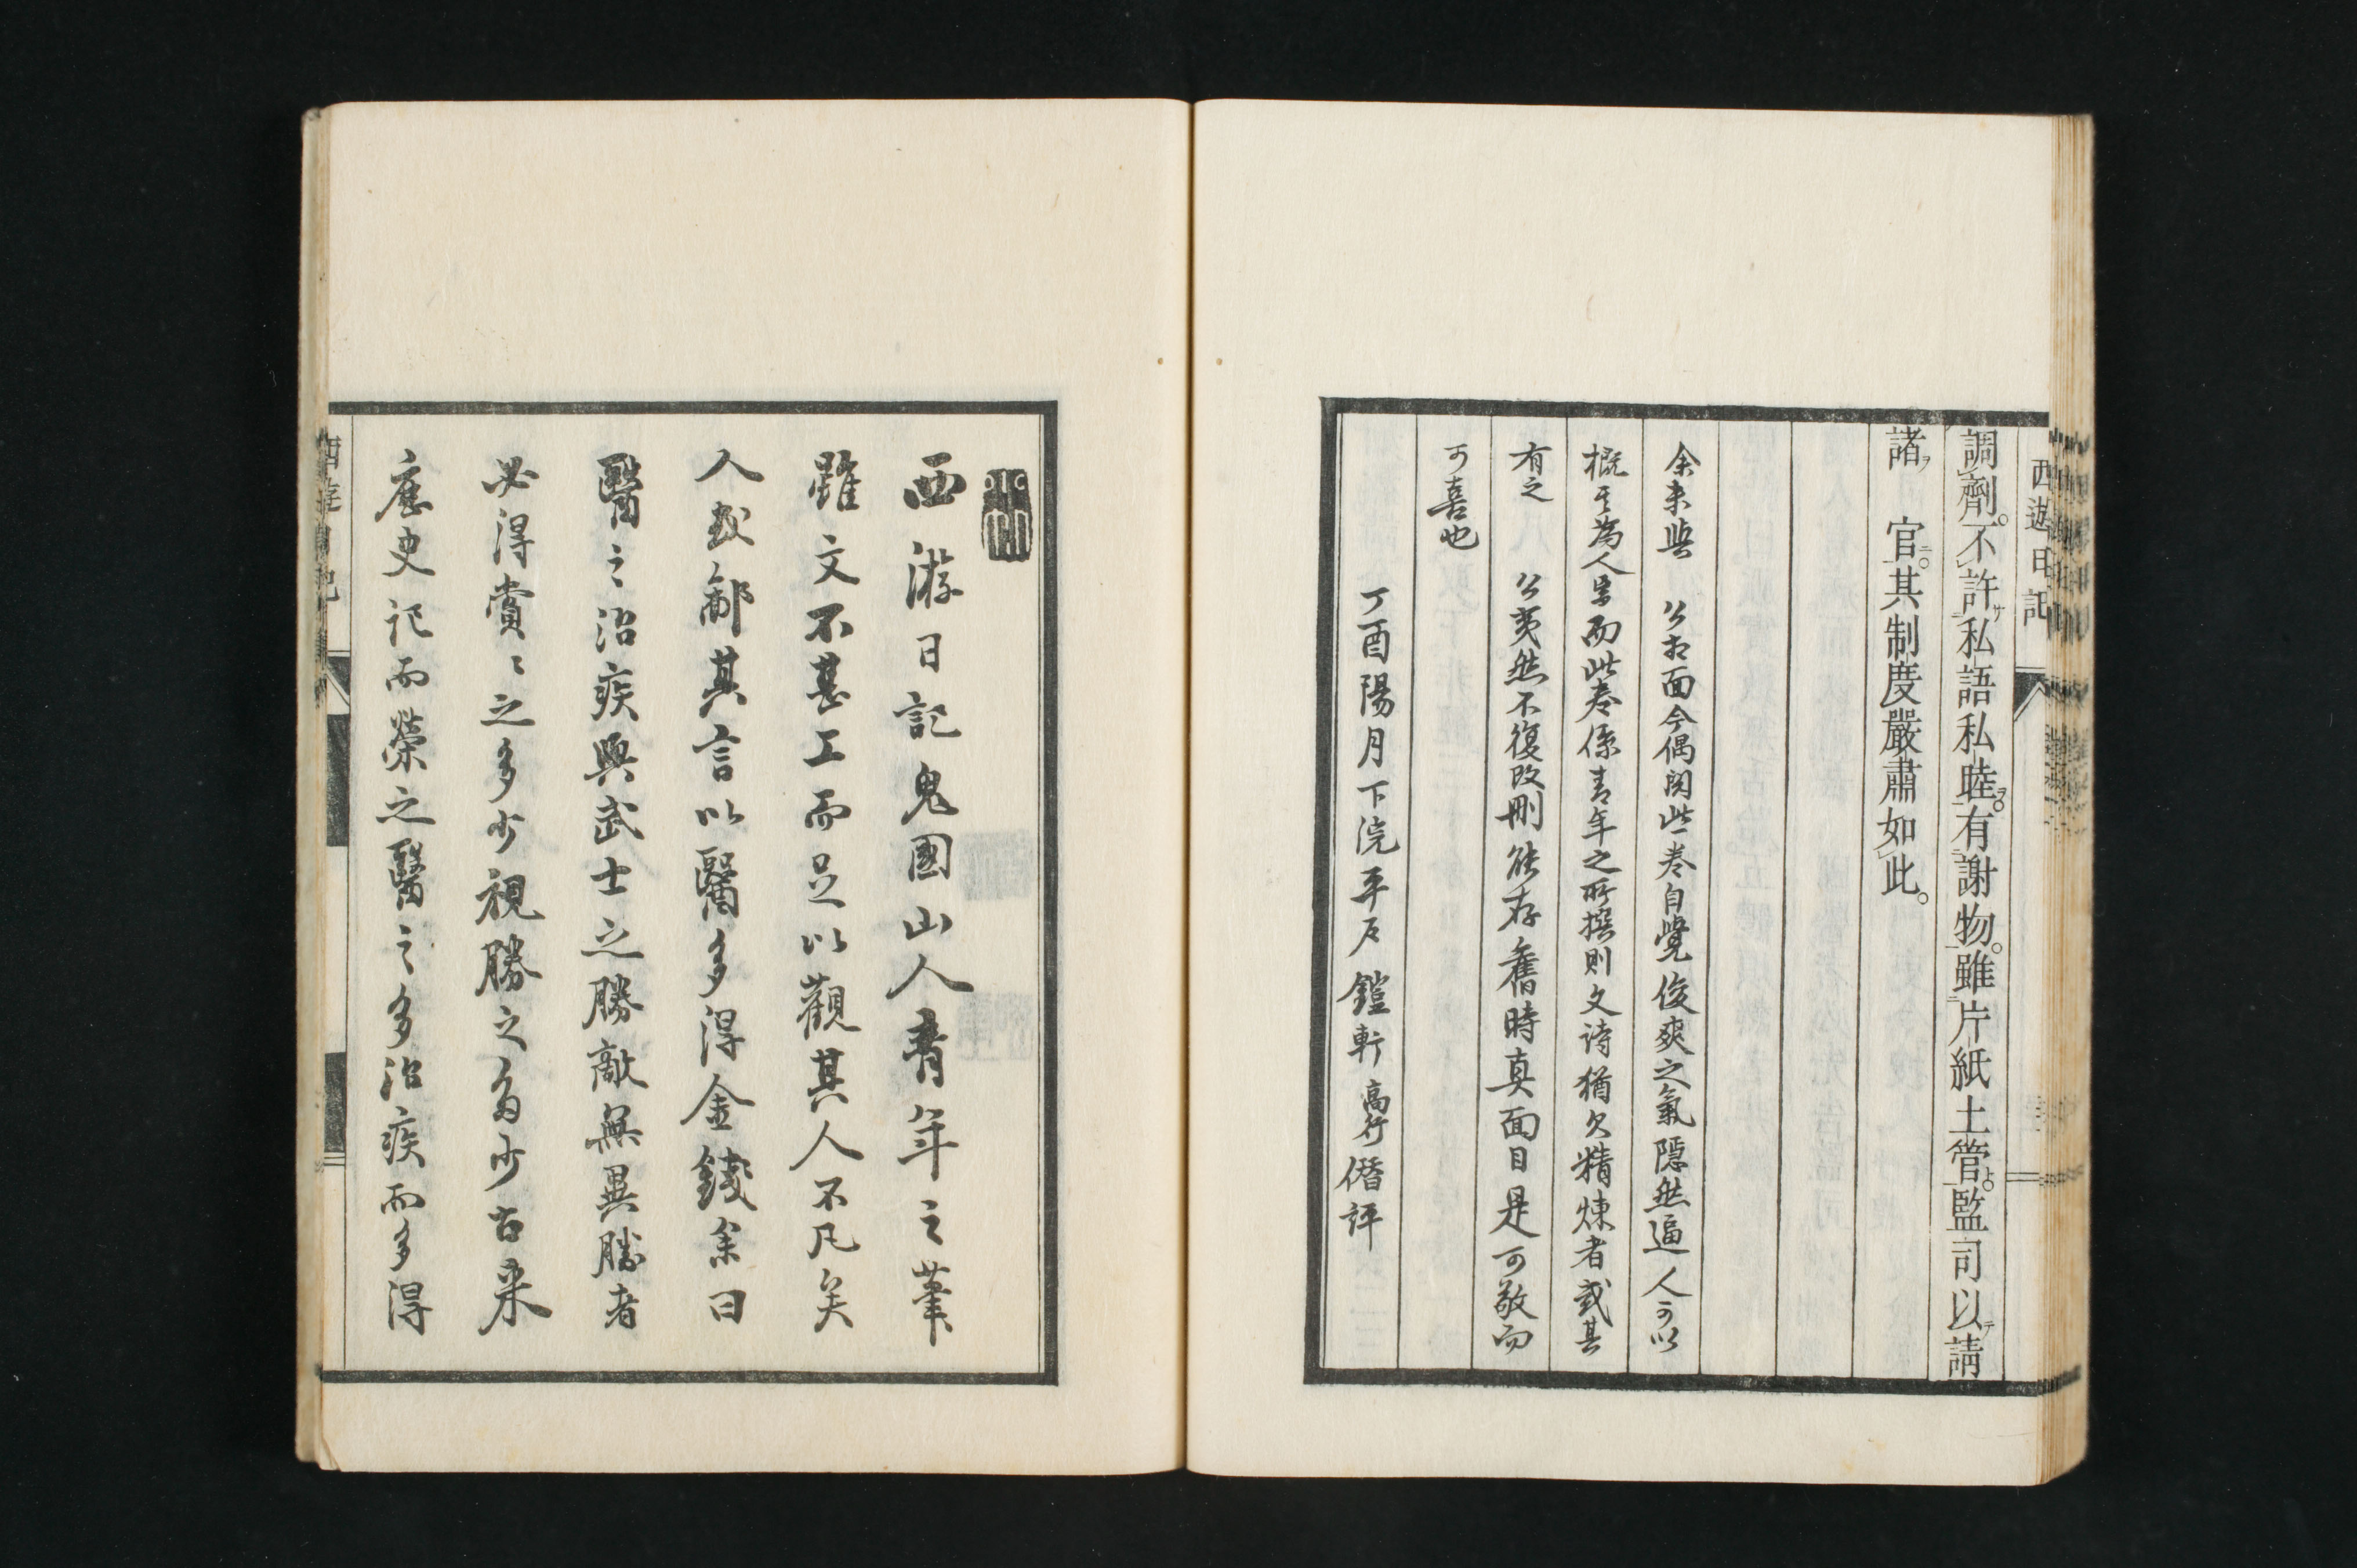 西遊日記
調劑不許私語私睦有謝物雖片紙土管監司以請
諸官其制度嚴肅如此
余未與公相面今偶閱此卷自覺俊爽之氣隱然逼人可以
概其為人矣而此卷係青年之所撰則文詩猶欠精煉者或其
有之公夷然不復改刪能存舊時真面目是可敬而
可喜也
丁酉陽月下浣平戶鎧軒高行僭評
西游日記鬼國山人青年之筆
雖文不甚工而足以觀其人不凡矣
人或鄙其言以醫多得金錢余曰
醫之治疾與武士之勝敵無異勝者
必得賞〻之多少視勝之多少古来
歷史記而榮之醫之多治疾而多得
西遊日記